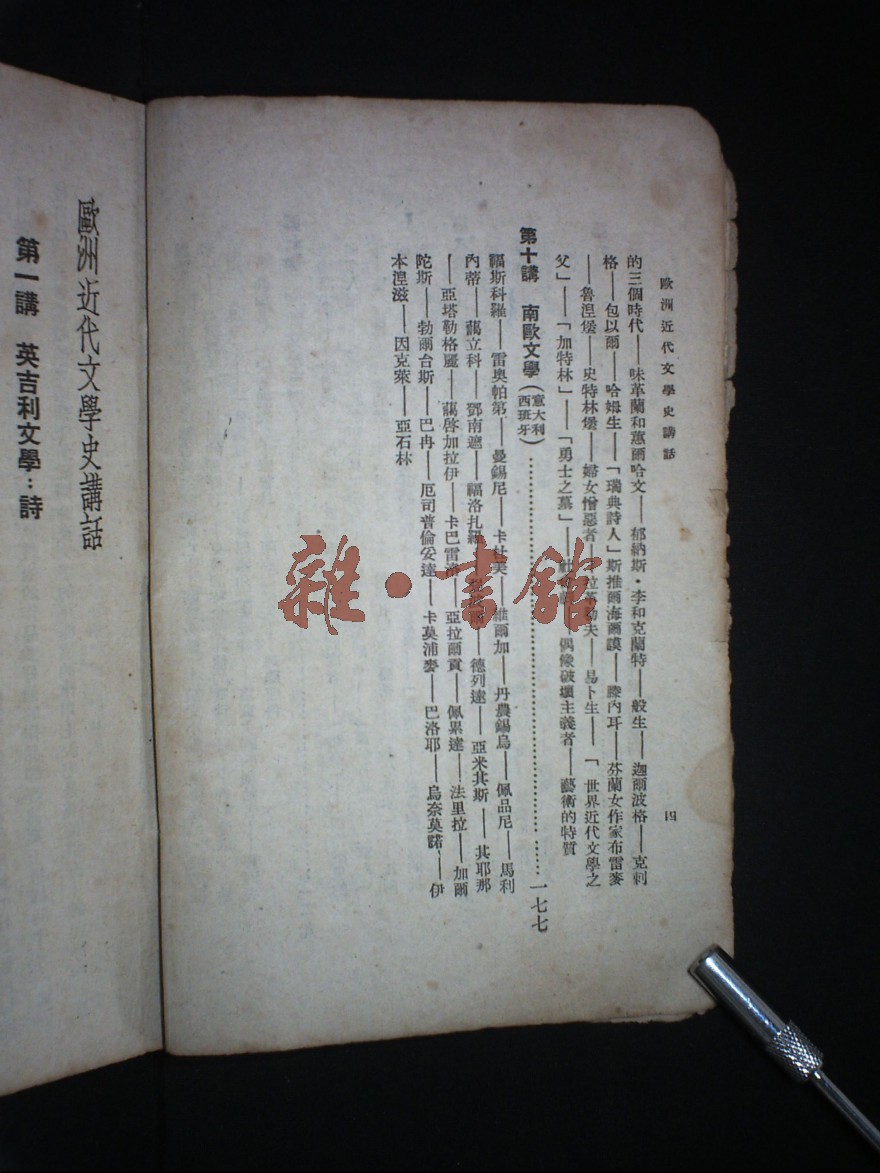 歐洲近代文學史講話
四
的三個時代——味革蘭和蕙爾哈文——郁納斯·李和克蘭特——般生——迦爾波格——克刺
格——包以爾——哈姆生——「瑞典詩人」斯推爾海爾謨——滕內耳——芬蘭女作家布雷麥
——魯湼堡——史特林堡——婦女憎惡者——拉革勒夫——易卜生——「世界近代文學之
父」——「加特林」——「勇士之墓」————偶像破壞主義者——藝術的特質
第十講 南歐文學(意大利 西班牙)……一七七
福斯科羅——雷奧帕第——曼錫尼——卡杜美——維爾加——丹農錫烏——佩品尼——馬利
內蒂——藹立科——鄧南遮——福洛扎羅——德列達——亞米其斯——其耶那
——亞塔勒格麗——藹啓加拉伊——卡巴雷洛——亞拉爾貢——佩累達——法里拉——加爾
陀斯——勃爾台斯——巴冉——厄司普倫妥達——卡莫浦麥——巴洛耶——烏奈莫諾——伊
本湼滋——因克萊——亞石林
歐洲近代文學史講話
第一講 英吉利文學:詩
雜·書館